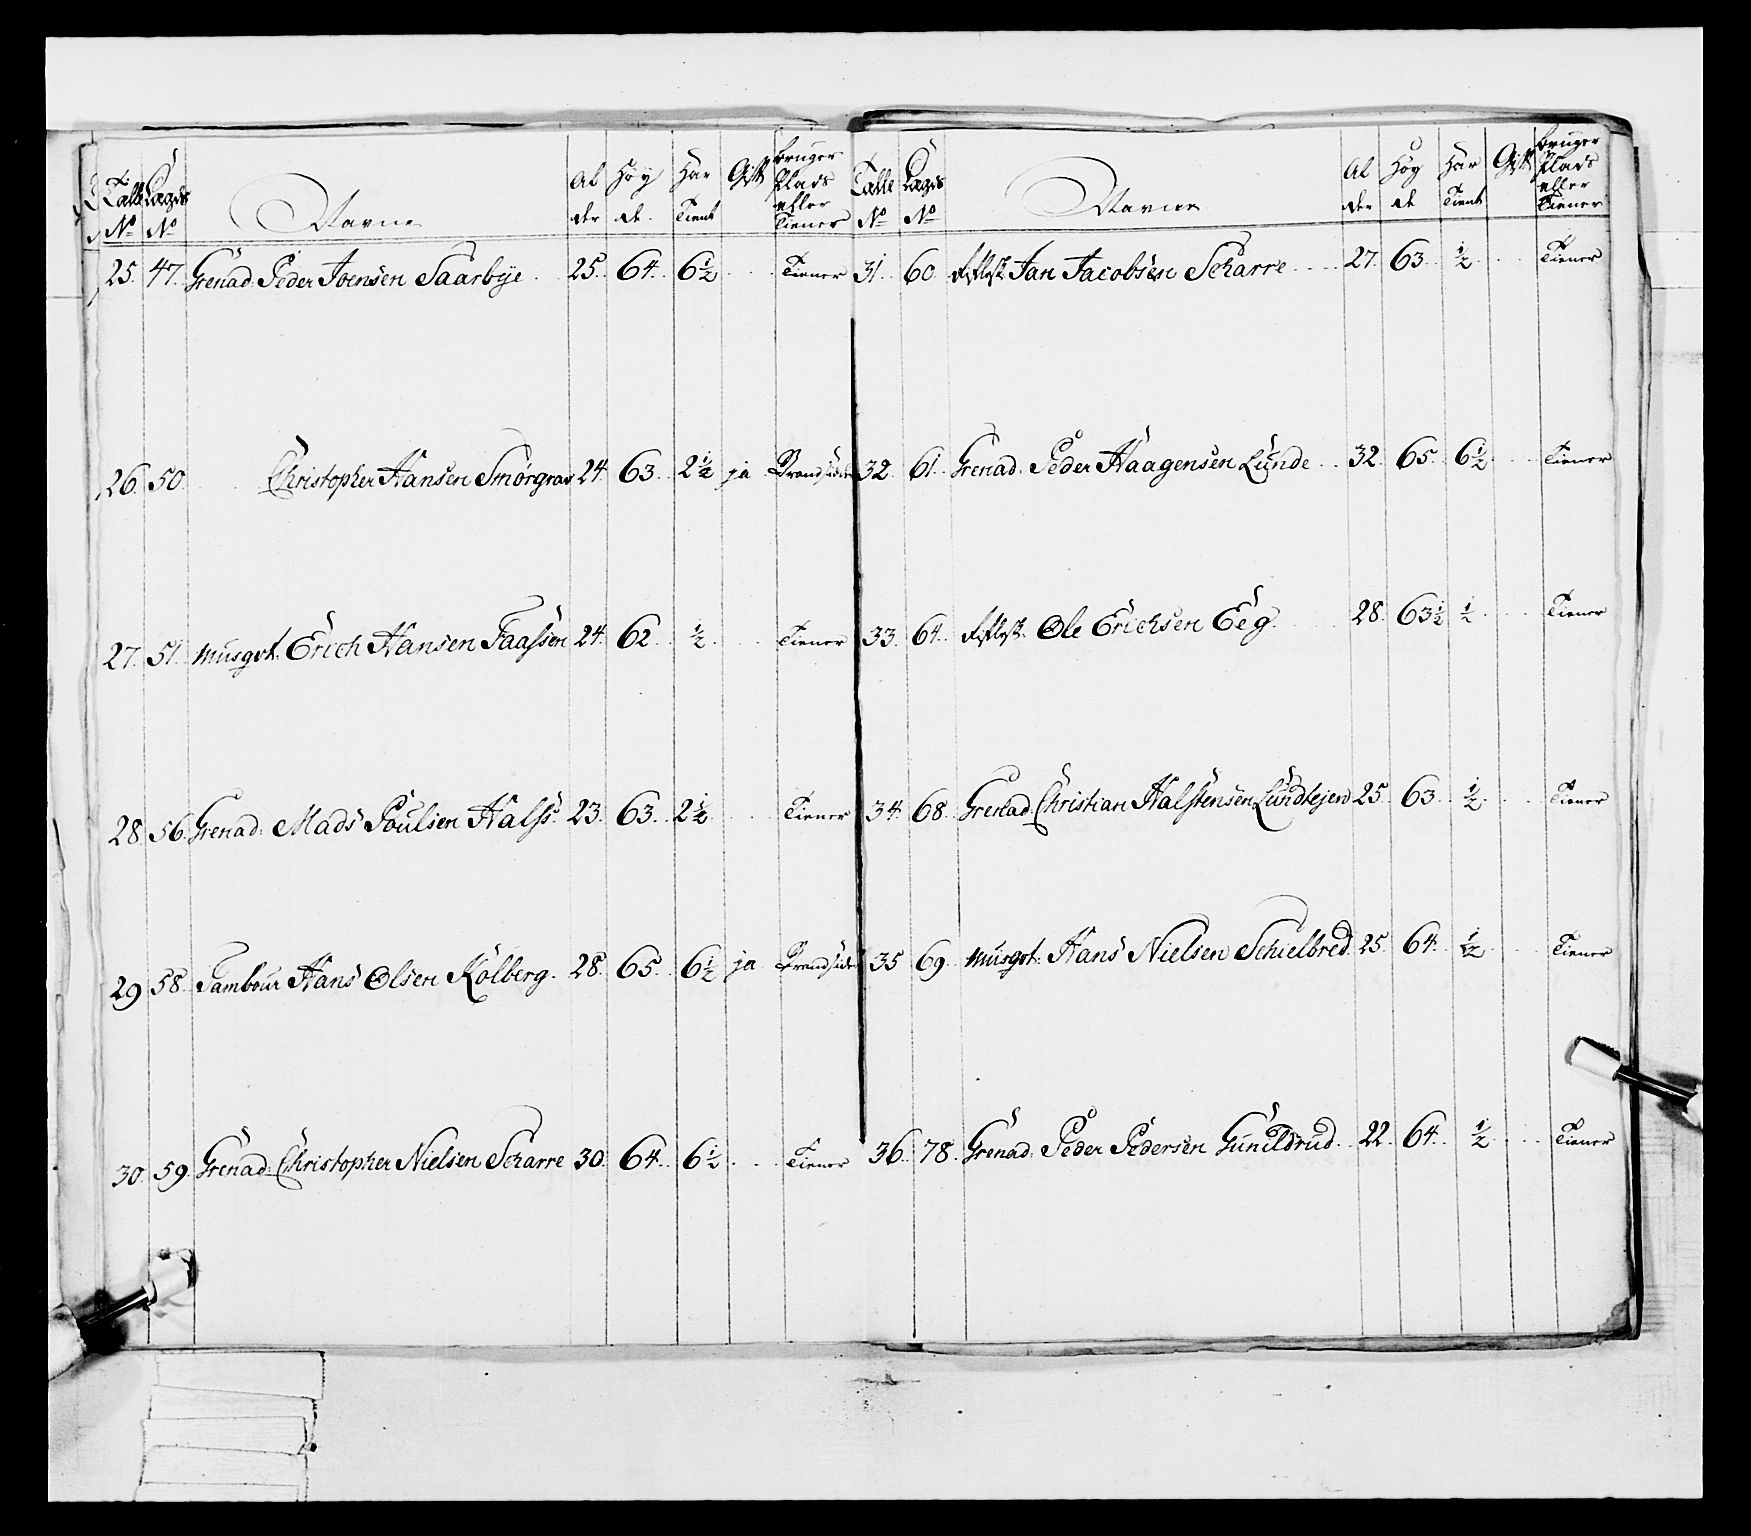 Talle No Lægds No Navne Al der Høy de. Har Tient Gift bruger Plads eller Tiener
25. 47. Grenad: Peder Joensen Saarbye 25. 64. 6½ Tiener
26. 50 Christopher Hansen Smørgrav 24. 63. 2½ ja
27. 51. Musqvt. Erich Hansen Faassen 24. 62. ½ Tiener
28. 56. Grenad: Mads Poulsen Halss. 23. 63. 2½ Tiener
29 58. Tambour Hans Olsen Kolberg. 28. 65. 6½ ja
30. 59. Grenad: Christopher Nielsen Scharre 30. 64. 6½ Tiener
Talle No Lægds No Navne Al der Høy de Har Tient Gift bruger Plads eller Tiener
31. 60. Jan Jacobsen Scharre 27. 63. ½ Tiener
32. 61. Grenad: Peder Haagensen Lunde 32. 65. 6½ Tiener
33. 64. Ole Erichsen Eeg. 28. 63½ ½ Tiener
34. 68. Grenad: Christian Halstensen Lundtejen 25. 63. ½ Tiener
35 69. Musqvt. Hans Nielsen Schielbred. 25. 64. ½ Tiener
36. 78. Grenad: Peder Pedersen Gunildrud. 22. 64. ½ Tiener